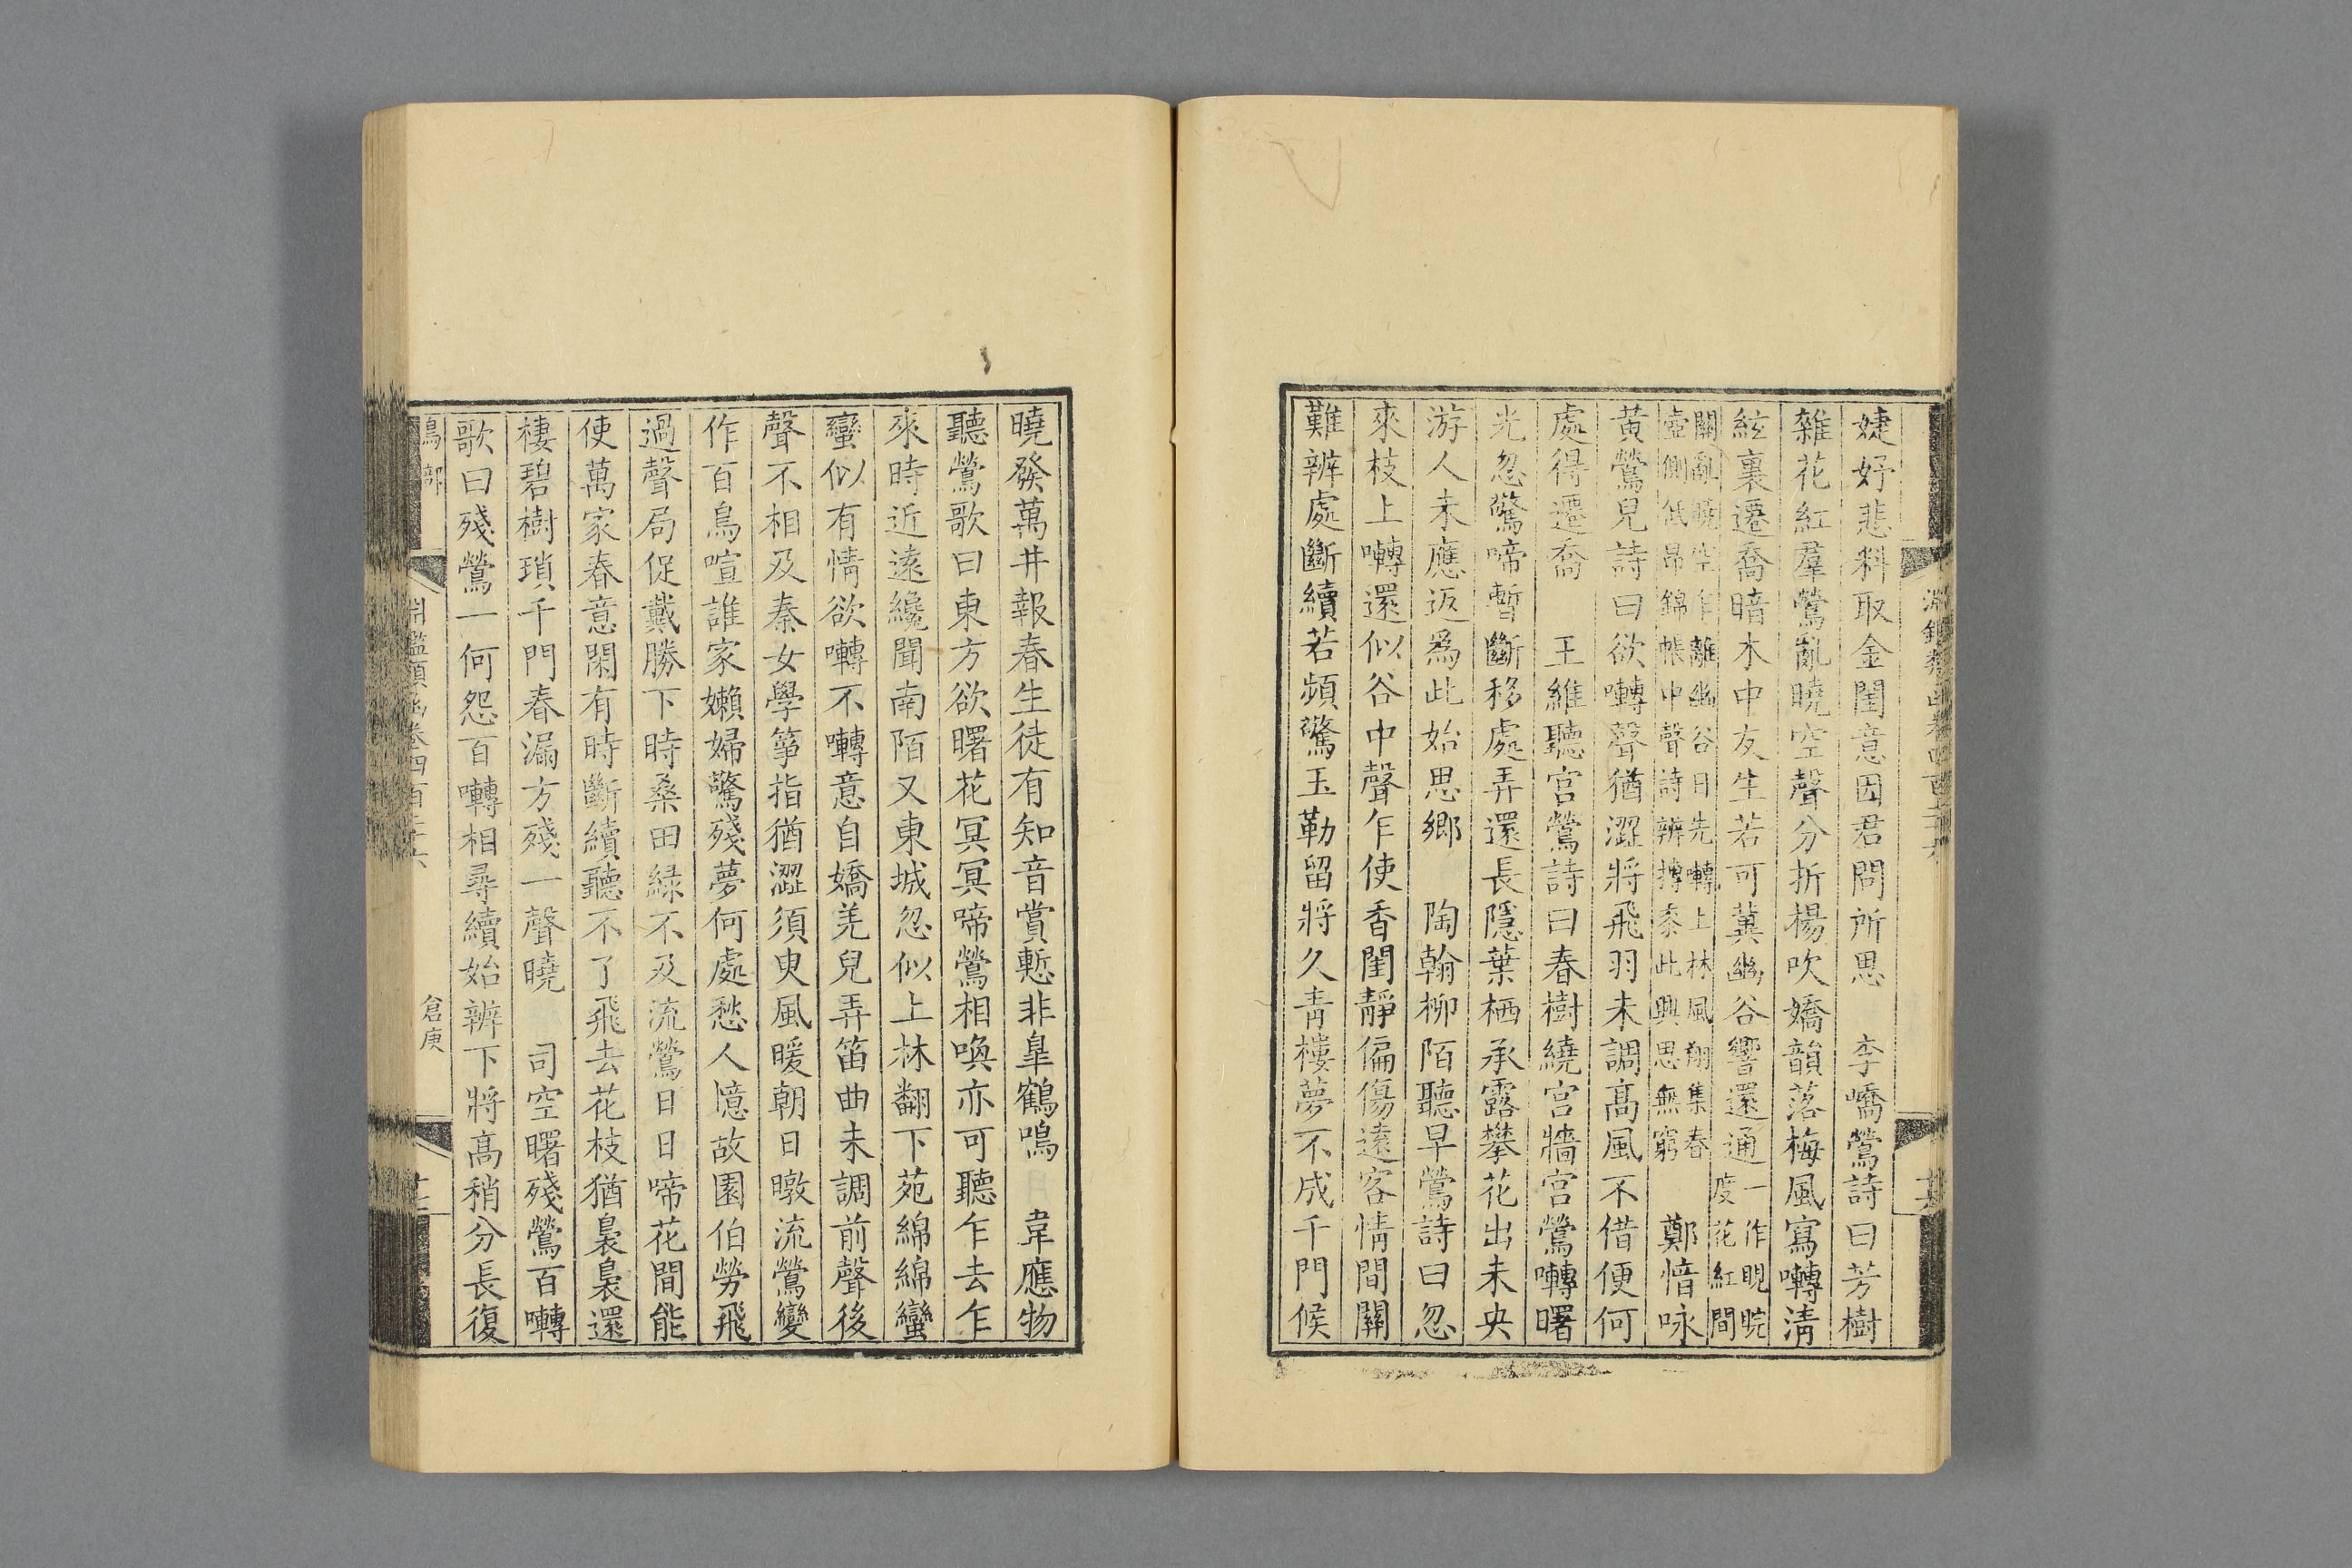 婕妤悲料取金閨意因君問所思　李嶠鶯詩曰芳樹
雜花紅羣鶯亂曉空聲分折楊吹嬌韻落梅風寫囀清
絃裏遷喬暗木中友生若可冀幽谷響還通一作睍睆
度花紅間
關亂曉空乍離幽谷日先囀上林風翔集春
壺側低昂錦帳中聲詩辨摶黍此興思無窮　鄭愔咏
黃鶯兒詩曰欲囀聲猶澀將飛羽未調高風不借便何
處得遷喬　王維聽宫鶯詩曰春樹繞宫牆宫鶯囀曙
光忽驚啼暫斷移處弄還長隱葉栖承露攀花出未央
游人未應返爲此始思鄉　陶翰柳陌聽早鶯詩曰忽
來枝上囀還似谷中聲乍使香閨靜偏傷遠客情間關
難辨處斷續若頻驚玉勒留將久青樓夢不成千門候
曉發萬井報春生徒有知音賞慙非臯鶴鳴　韋應物
聽鶯歌曰東方欲曙花冥冥啼鶯相喚亦可聽乍去乍
來時近遠纔聞南陌又東城忽似上林翻下苑綿綿蠻
蠻似有情欲囀不囀意自嬌羌兒弄笛曲未調前聲後
聲不相及秦女學箏指猶澀須臾風暖朝日暾流鶯變
作百鳥喧誰家嬾婦驚殘夢何處愁人憶故園伯勞飛
過聲局促戴勝下時桑田綠不及流鶯日日啼花間能
使萬家春意閑有時斷續聽不了飛去花枝猶裊裊還
棲碧樹瑣千門春漏方殘一聲曉　司空曙殘鶯百囀
歌曰殘鶯一何怨百囀相尋續始辨下將高稍分長復
鳥部
淵鑑類函卷四百二十六
倉庚